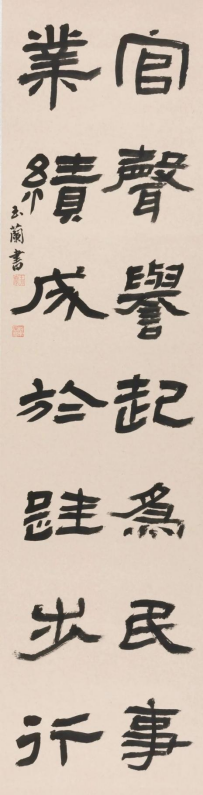 官聲譽起為民事
業績成於跬步行
玉蘭書